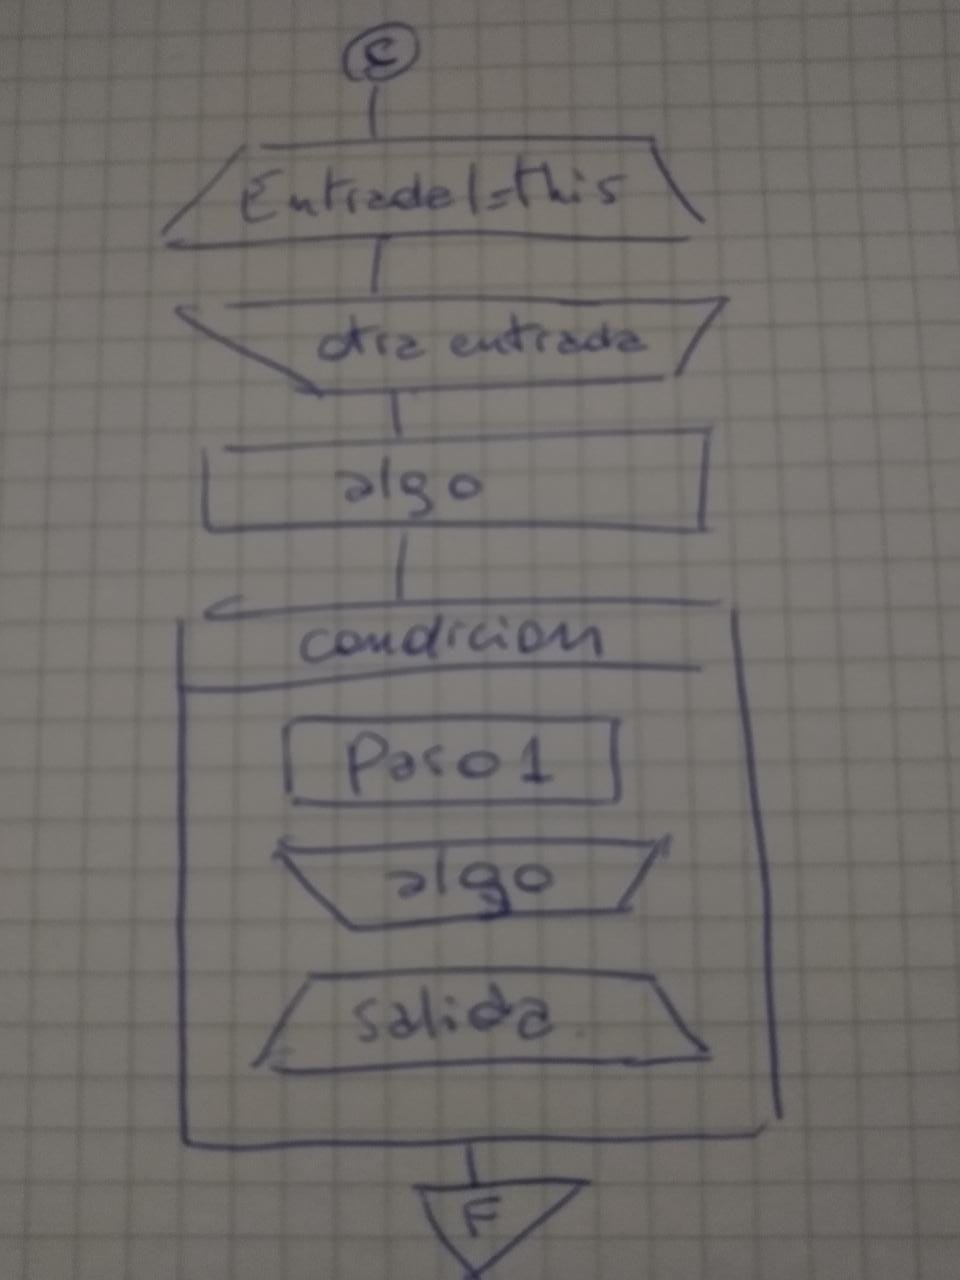 C
Entrada1=this
otra entrada
algo
condicion
Paso1
algo
salida
F